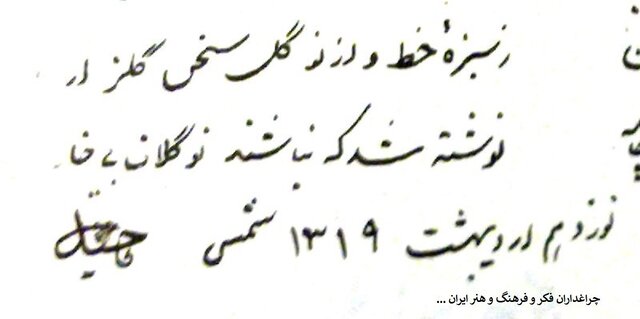 ز سبزهٔ خط و از نو گل سخن گلزار
نوشته شد که نباشند نوگلان بی خار
نوزدهم اردیبهشت ۱۳۱۹ شمسی
چراغداران فکر و فرهنگ و هنر ایران ...